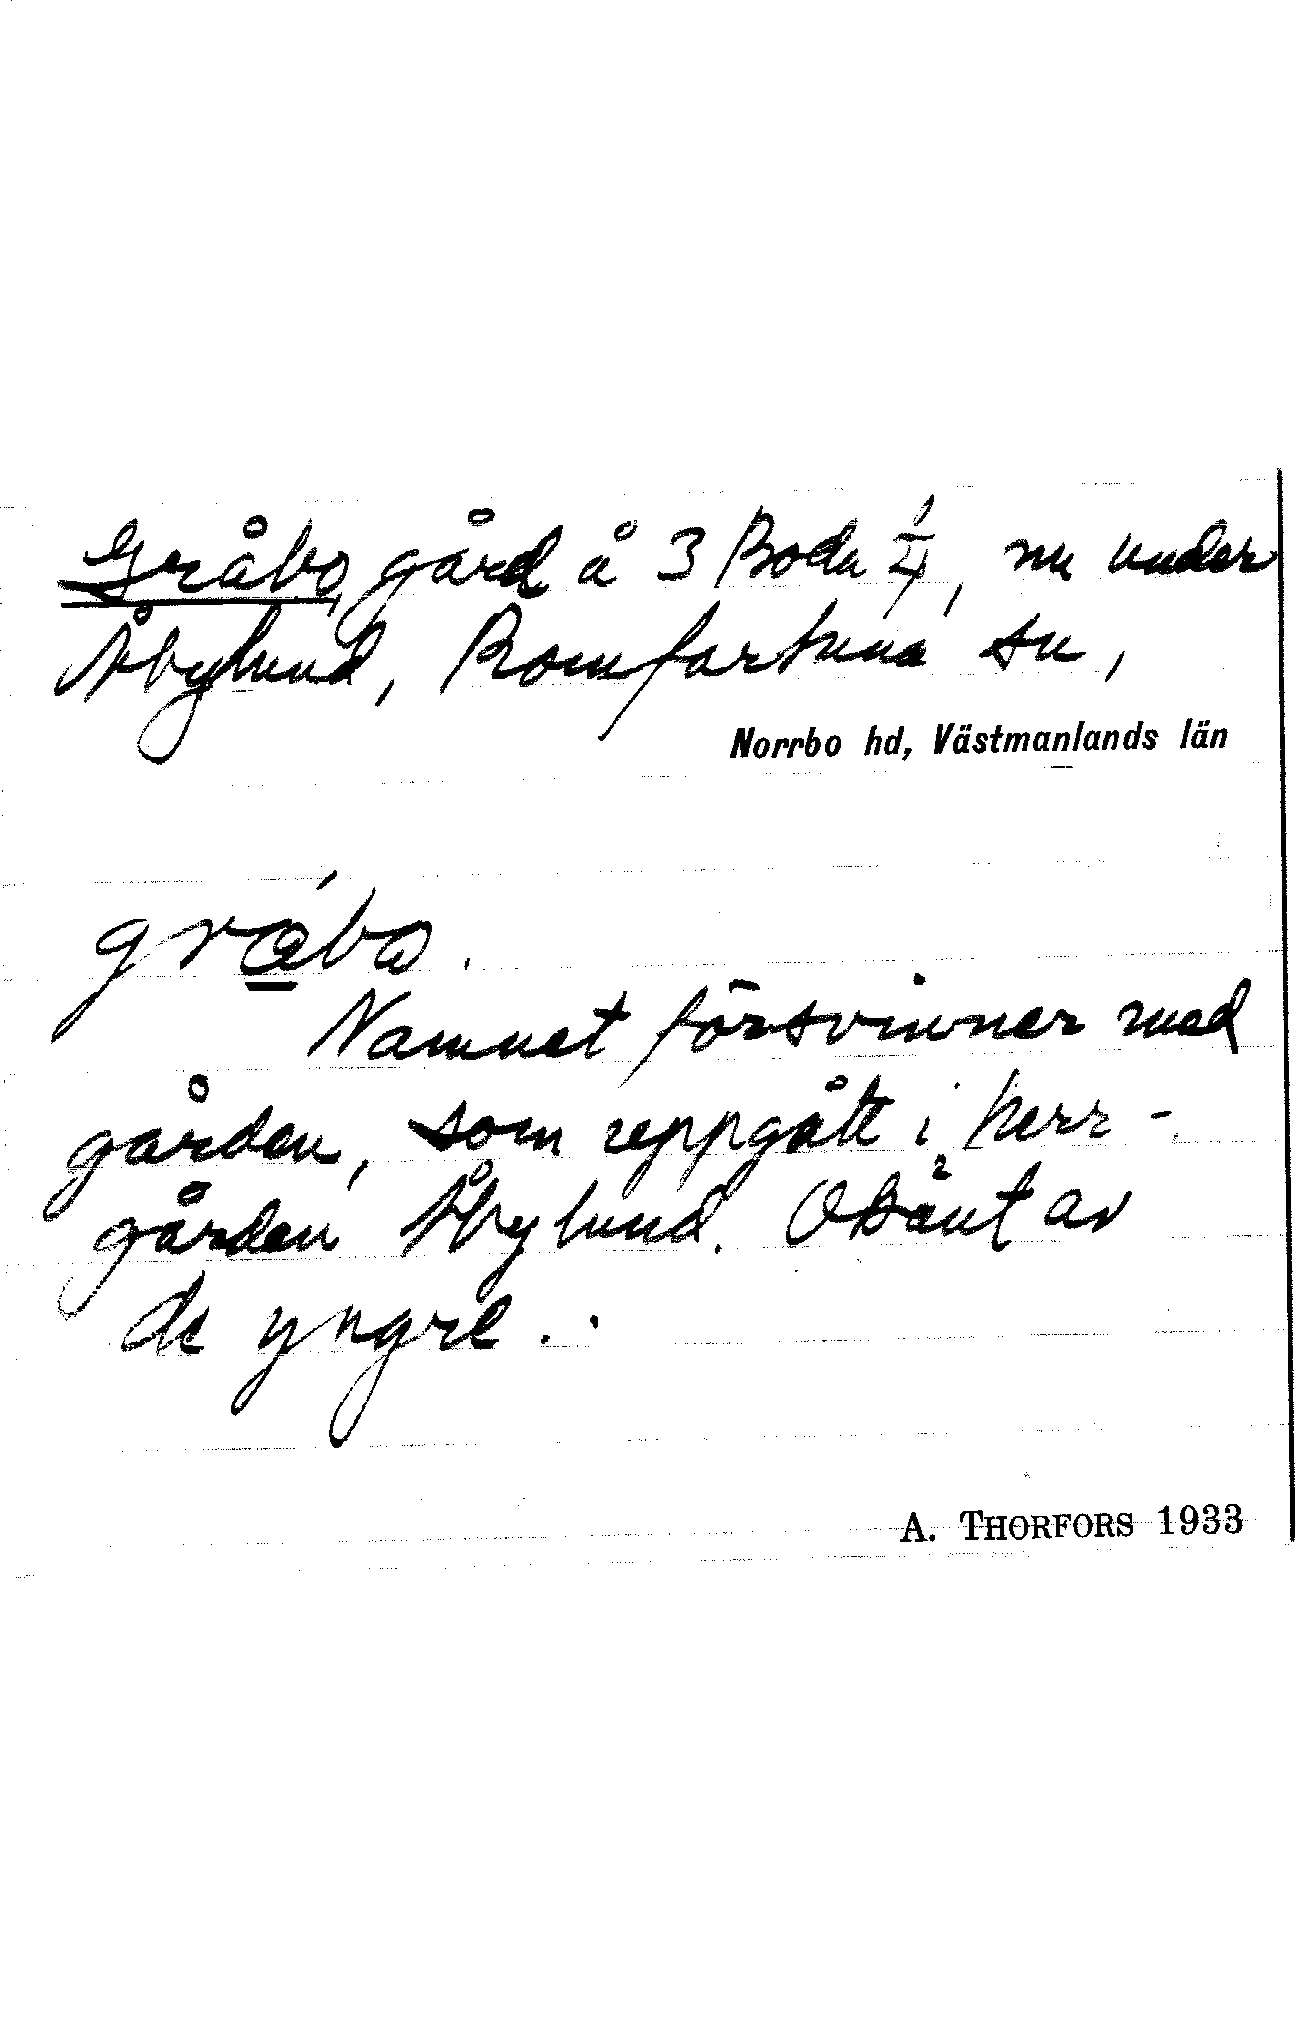 Gråbo, gård å 3 Boda 1/4, nu under
Åbylund, Romfartuna sn,
Norrbo hd, Västmanlands län
gråbo.
Namnet försvinner med
gården, som uppgått i herr-
gården Åbylund. Okänt av
de yngre.
A. THORFORS 1933